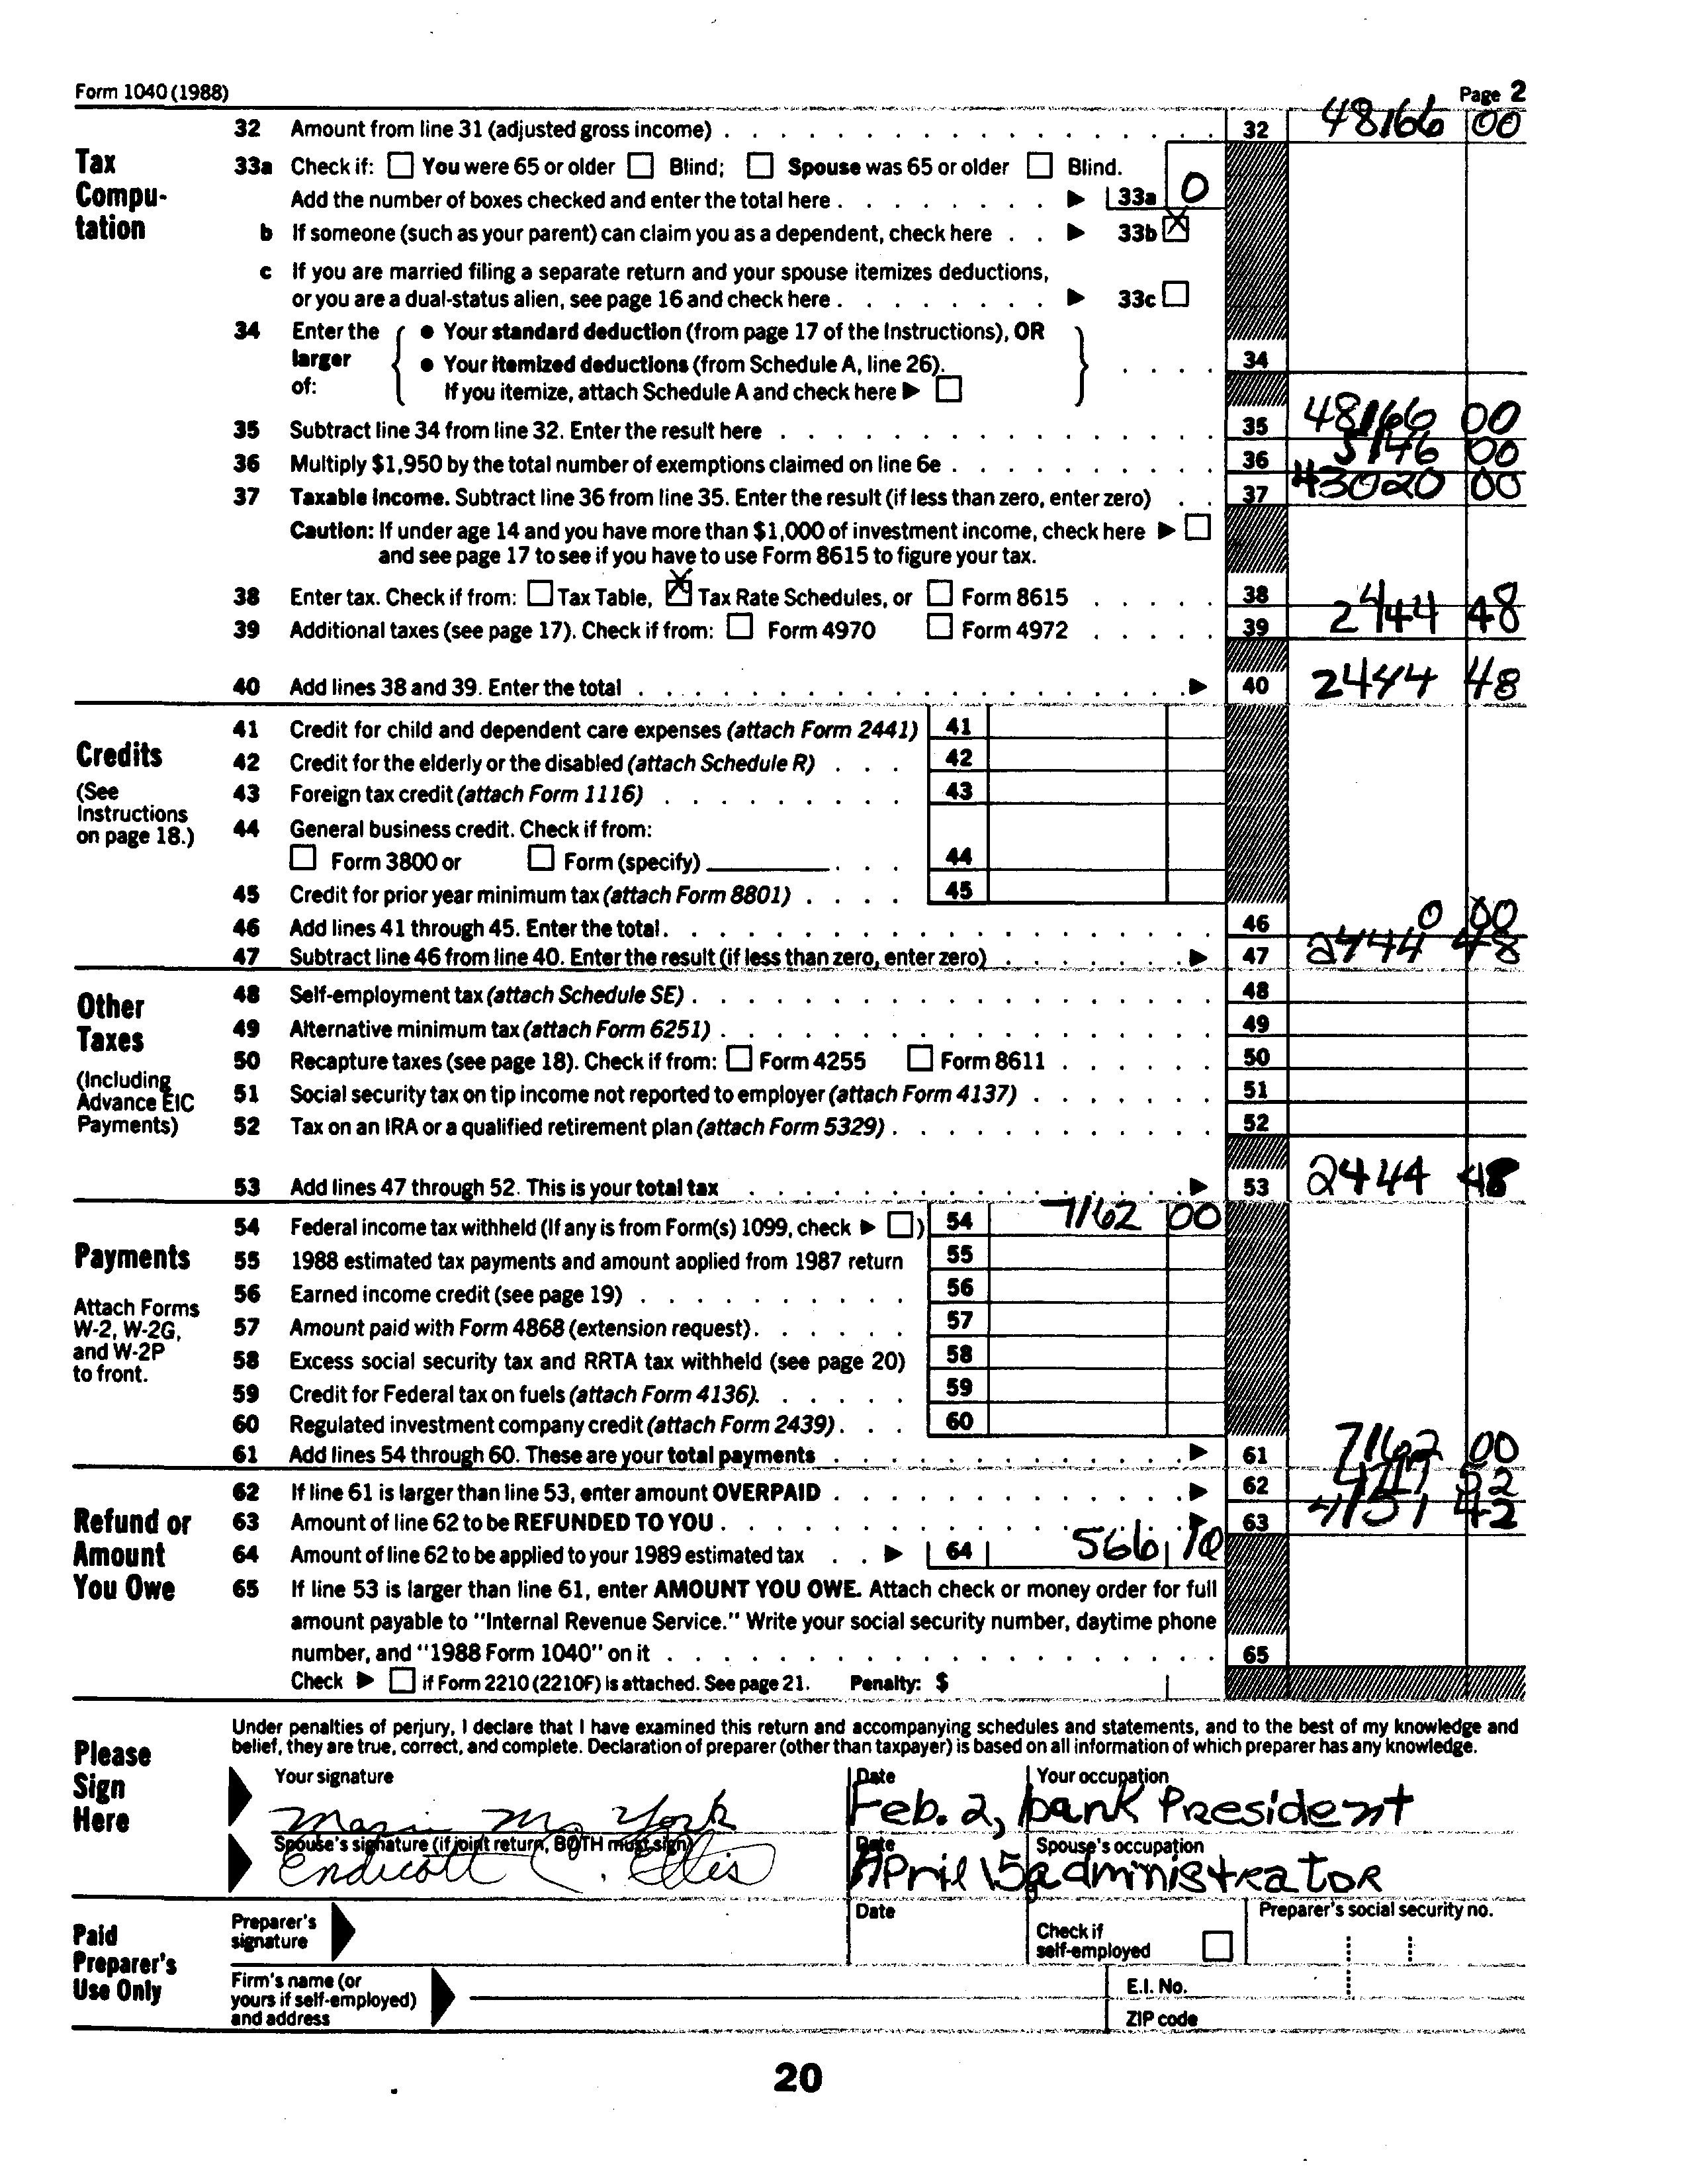 Form 1040 (1988) Page 2
Tax Computation
32 Amount from line 31 (adjusted gross income) 32 48166 00
33a Check if: ☐ You were 65 or older ☐ Blind; ☐ Spouse was 65 or older ☐ Blind.
Add the number of boxes checked and enter the total here ▶ 33a 0
b If someone (such as your parent) can claim you as a dependent, check here ▶ 33b ☒
c If you are married filing a separate return and your spouse itemizes deductions,
or you are a dual-status alien, see page 16 and check here ▶ 33c ☐
34 Enter the larger of: { ● Your standard deduction (from page 17 of the Instructions), OR
● Your itemized deductions (from Schedule A, line 26). 34
If you itemize, attach Schedule A and check here ▶ ☐ }
35 Subtract line 34 from line 32. Enter the result here 35 48166 00
36 Multiply $1,950 by the total number of exemptions claimed on line 6e 36 5146 00
37 Taxable income. Subtract line 36 from line 35. Enter the result (if less than zero, enter zero) 37 43020 00
Caution: If under age 14 and you have more than $1,000 of investment income, check here ▶ ☐
and see page 17 to see if you have to use Form 8615 to figure your tax.
38 Enter tax. Check if from: ☐ Tax Table, ☒ Tax Rate Schedules, or ☐ Form 8615 38 2444 48
39 Additional taxes (see page 17). Check if from: ☐ Form 4970 ☐ Form 4972 39
40 Add lines 38 and 39. Enter the total ▶ 40 2444 48
Credits
(See Instructions on page 18.)
41 Credit for child and dependent care expenses (attach Form 2441) 41
42 Credit for the elderly or the disabled (attach Schedule R) 42
43 Foreign tax credit (attach Form 1116) 43
44 General business credit. Check if from:
☐ Form 3800 or ☐ Form (specify) 44
45 Credit for prior year minimum tax (attach Form 8801) 45
46 Add lines 41 through 45. Enter the total. 46 0 00
47 Subtract line 46 from line 40. Enter the result (if less than zero, enter zero) ▶ 47 2444 48
Other Taxes
(Including Advance EIC Payments)
48 Self-employment tax (attach Schedule SE) 48
49 Alternative minimum tax (attach Form 6251) 49
50 Recapture taxes (see page 18). Check if from: ☐ Form 4255 ☐ Form 8611 50
51 Social security tax on tip income not reported to employer (attach Form 4137) 51
52 Tax on an IRA or a qualified retirement plan (attach Form 5329) 52
53 Add lines 47 through 52. This is your total tax ▶ 53 2444 48
Payments
Attach Forms W-2, W-2G, and W-2P to front.
54 Federal income tax withheld (If any is from Form(s) 1099, check ▶ ☐) 54 7162 00
55 1988 estimated tax payments and amount applied from 1987 return 55
56 Earned income credit (see page 19) 56
57 Amount paid with Form 4868 (extension request) 57
58 Excess social security tax and RRTA tax withheld (see page 20) 58
59 Credit for Federal tax on fuels (attach Form 4136) 59
60 Regulated investment company credit (attach Form 2439) 60
61 Add lines 54 through 60. These are your total payments ▶ 61 7162 00
Refund or Amount You Owe
62 If line 61 is larger than line 53, enter amount OVERPAID ▶ 62 4717 52
63 Amount of line 62 to be REFUNDED TO YOU ▶ 63 4151 42
64 Amount of line 62 to be applied to your 1989 estimated tax ▶ 64 566 10
65 If line 53 is larger than line 61, enter AMOUNT YOU OWE. Attach check or money order for full
amount payable to "Internal Revenue Service." Write your social security number, daytime phone
number, and "1988 Form 1040" on it 65
Check ▶ ☐ if Form 2210 (2210F) is attached. See page 21. Penalty: $
Please Sign Here
Under penalties of perjury, I declare that I have examined this return and accompanying schedules and statements, and to the best of my knowledge and
belief, they are true, correct, and complete. Declaration of preparer (other than taxpayer) is based on all information of which preparer has any knowledge.
Your signature Date Your occupation
M. York Feb. 2, bank President
Spouse's signature (if joint return, BOTH must sign) Date Spouse's occupation
Endicott C. Ellis April 15 administrator
Paid Preparer's Use Only
Preparer's signature Date Check if self-employed ☐ Preparer's social security no.
Firm's name (or yours if self-employed) and address E.I. No.
ZIP code
20